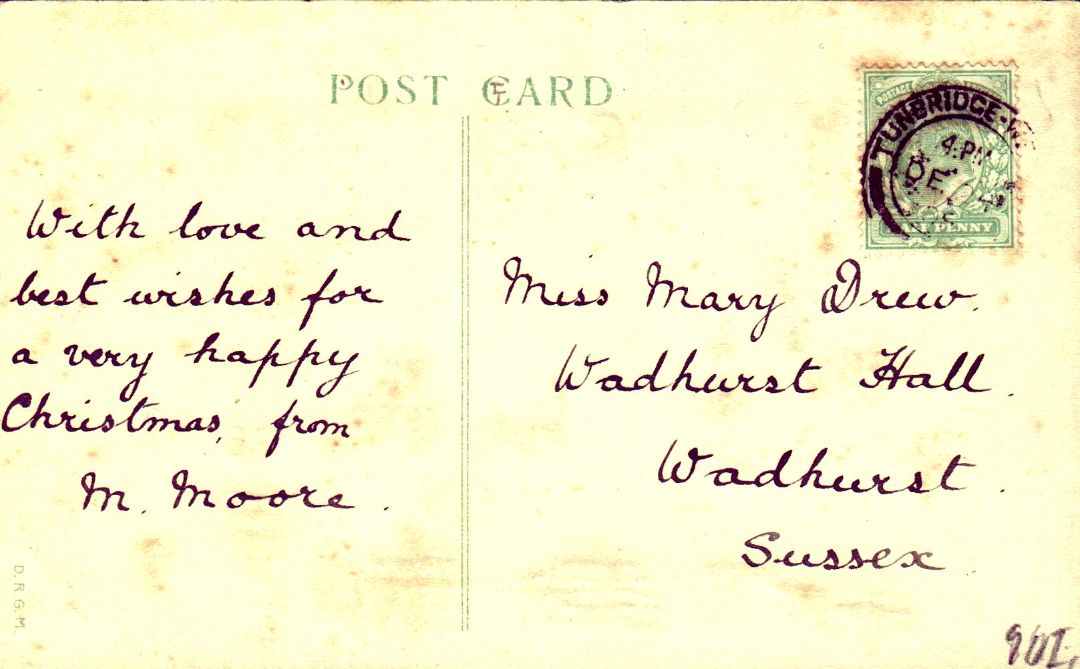 POST CARD
TUNBRIDGE-W
4.PM
DE
POSTAGE
PENNY
With love and
best wishes for
a very happy
Christmas, from
M. Moore.
Miss Mary Drew.
Wadhurst Hall.
Wadhurst.
Sussex
D.R.G.M.